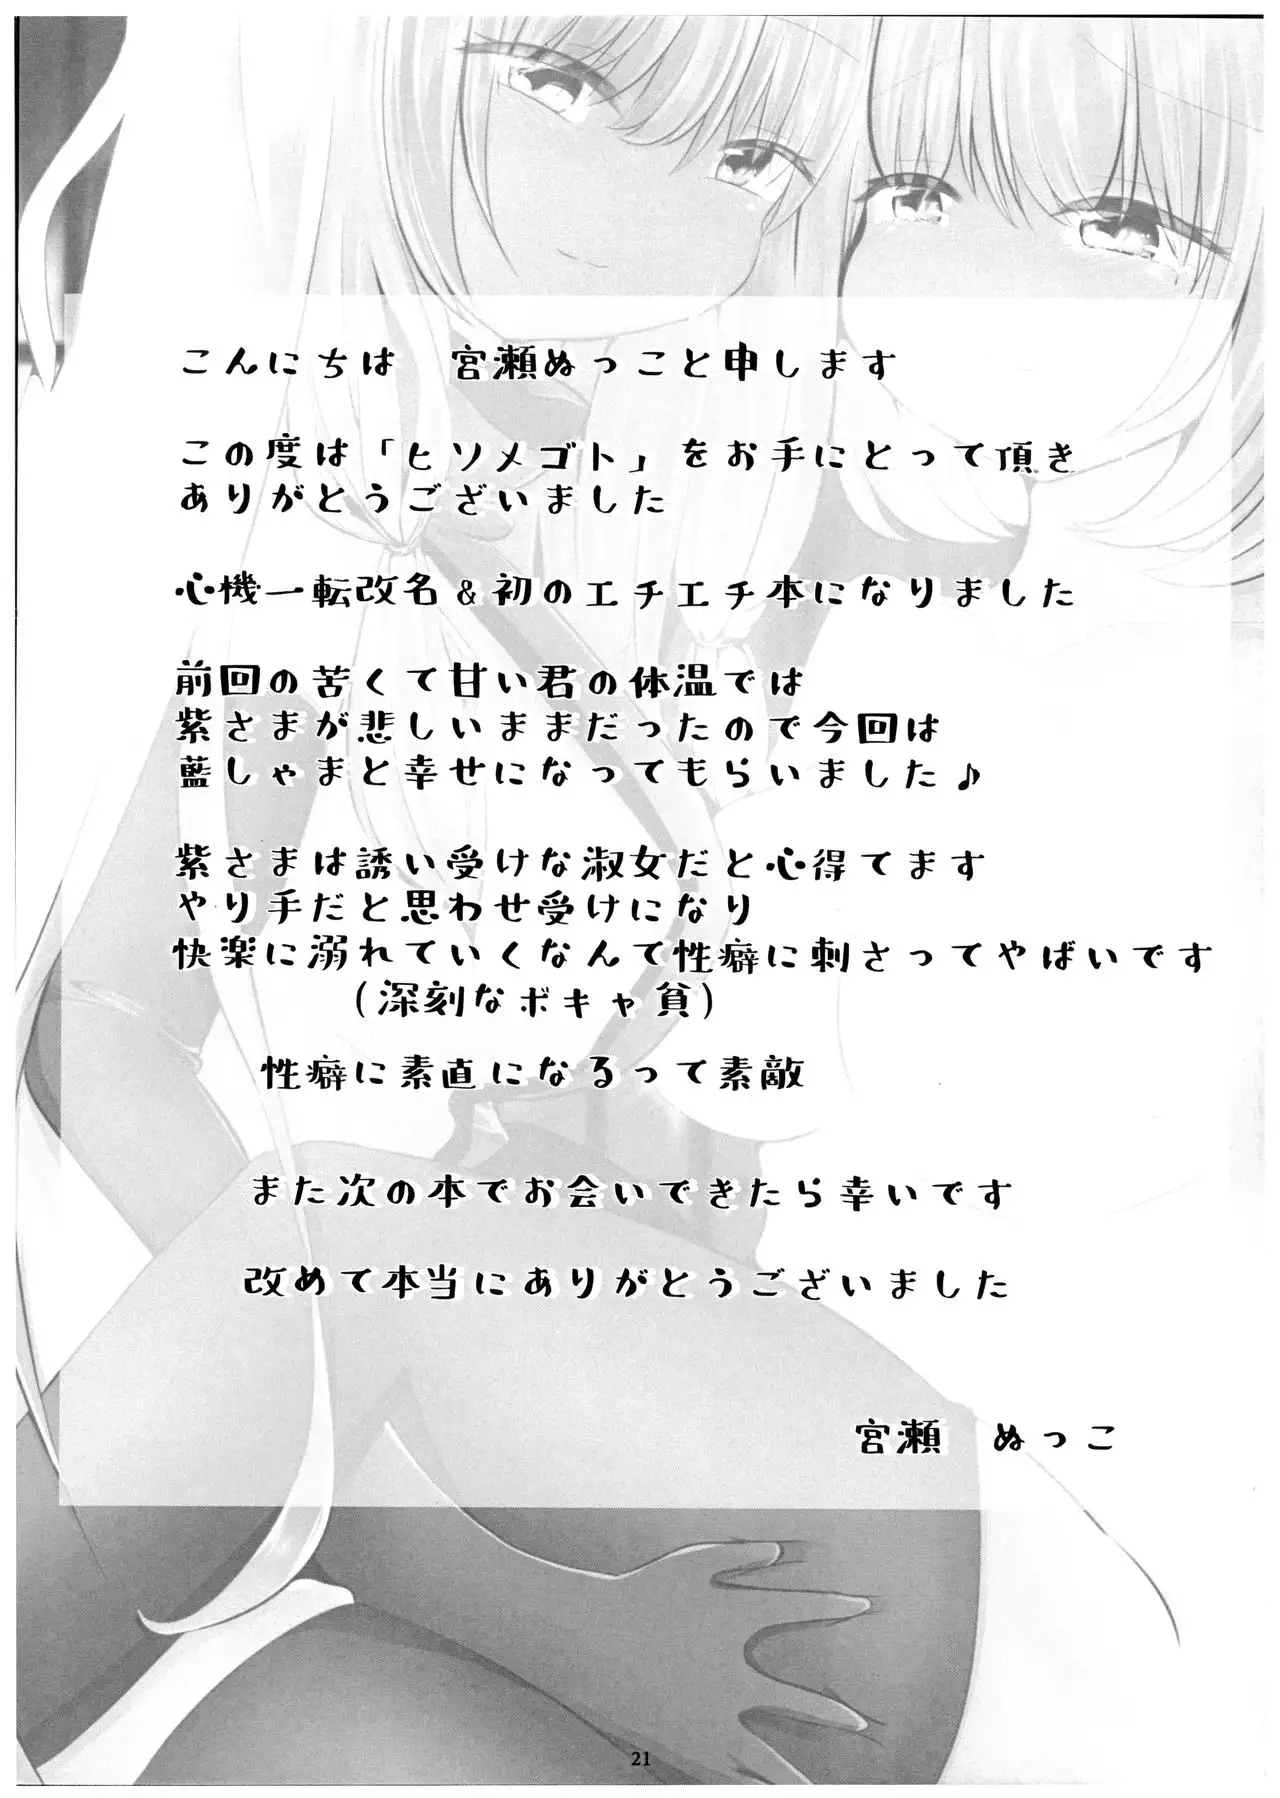 こんにちは　宮瀬ぬっこと申します
この度は「ヒソメゴト」をお手にとって頂き
ありがとうございました
心機一転改名＆初のエチエチ本になりました
前回の苦くて甘い君の体温では
紫さまが悲しいままだったので今回は
藍しゃまと幸せになってもらいました♪
紫さまは誘い受けな淑女だと心得てます
やり手だと思わせ受けになり
快楽に溺れていくなんて性癖に刺さってやばいです
（深刻なボキャ貧）
性癖に素直になるって素敵
また次の本でお会いできたら幸いです
改めて本当にありがとうございました
宮瀬　ぬっこ
21